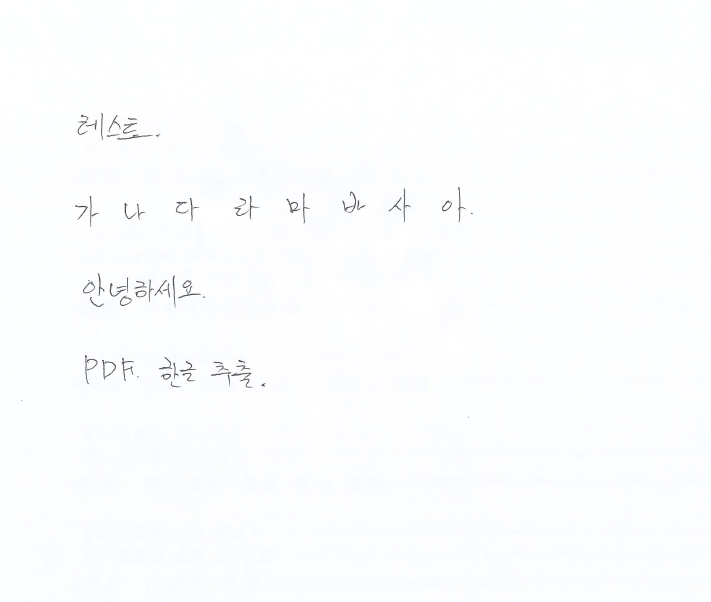 테스트.
가 나 다 라 마 바 사 아.
안녕하세요.
PDF. 한글 추출.